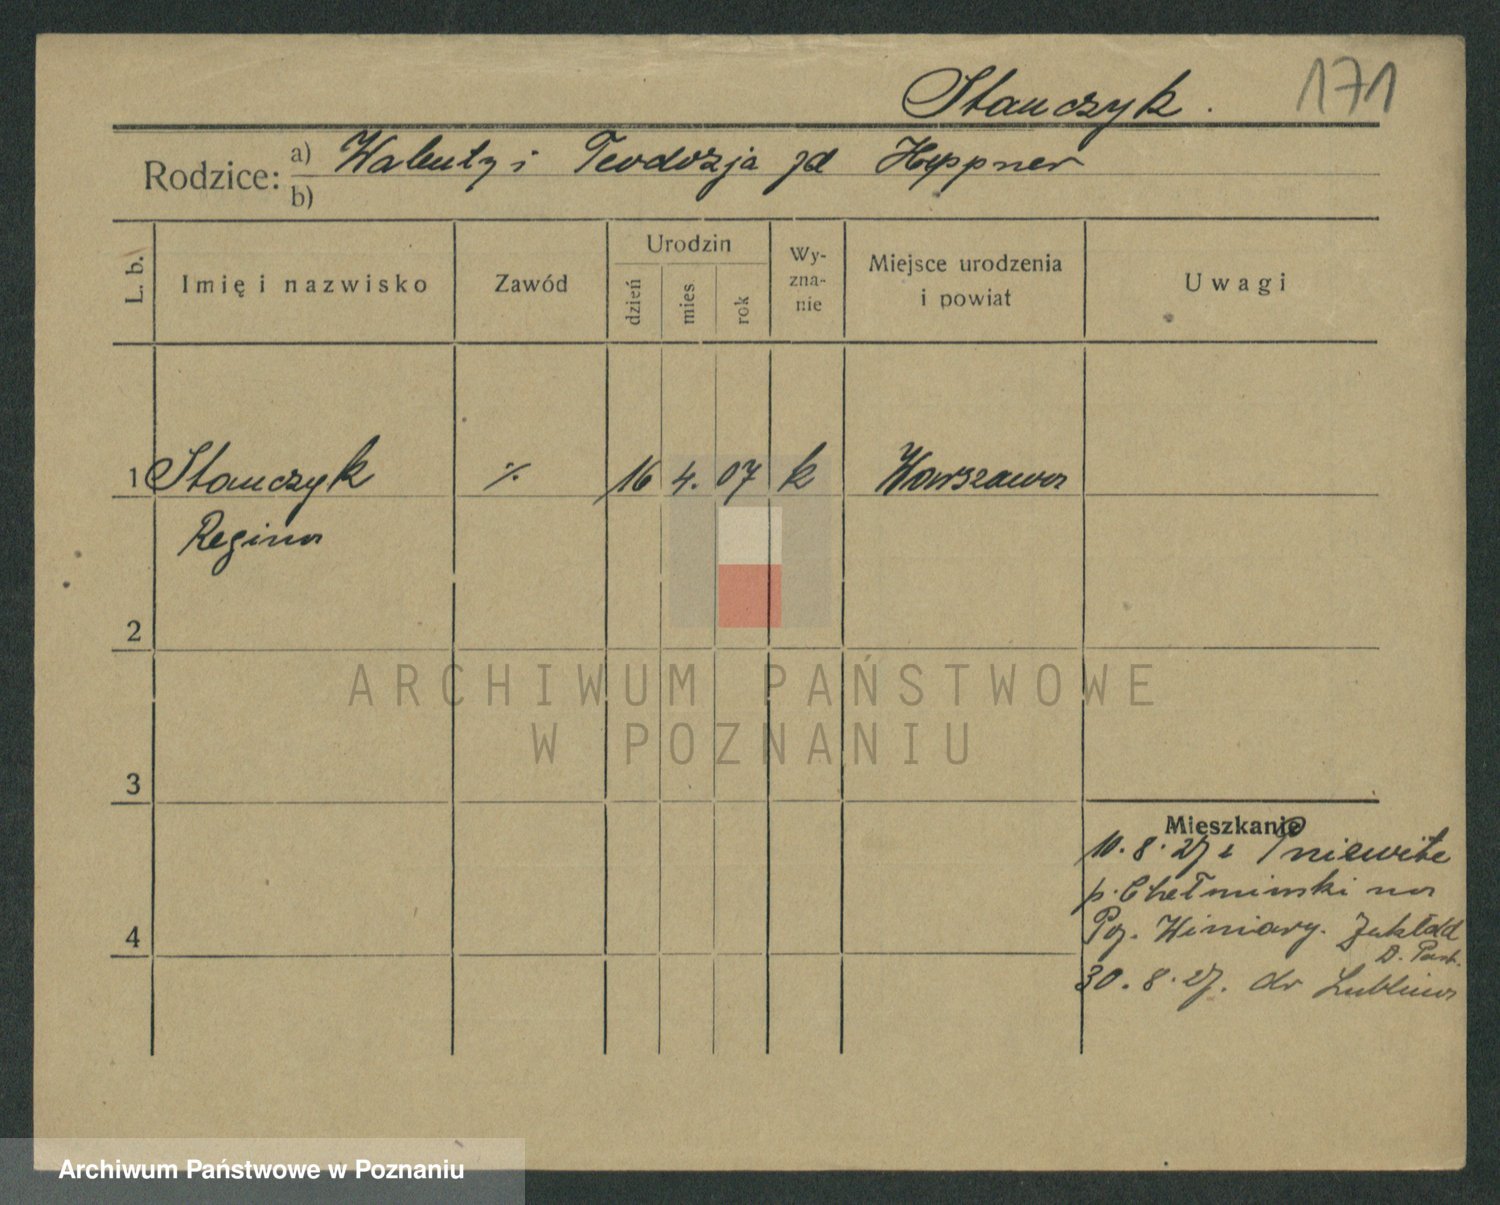 Stanczyk. 171
Rodzice: a) Walenty i Teodozja zd Heppner
b)
L. b. Imię i nazwisko Zawód Urodzin dzień mies rok Wy-zna-nie Miejsce urodzenia i powiat Uwagi
1 Stanczyk ·/. 16 4. 07 k Warszawa
Regina
2
ARCHIWUM PAŃSTWOWE
W POZNANIU
3
Mieszkanie
10. 8. 27 z Gniewite
p. Chełminski na
4 Poz. Winiary. Zakład
D. Past.
30. 8. 27. do Lublina
Archiwum Państwowe w Poznaniu